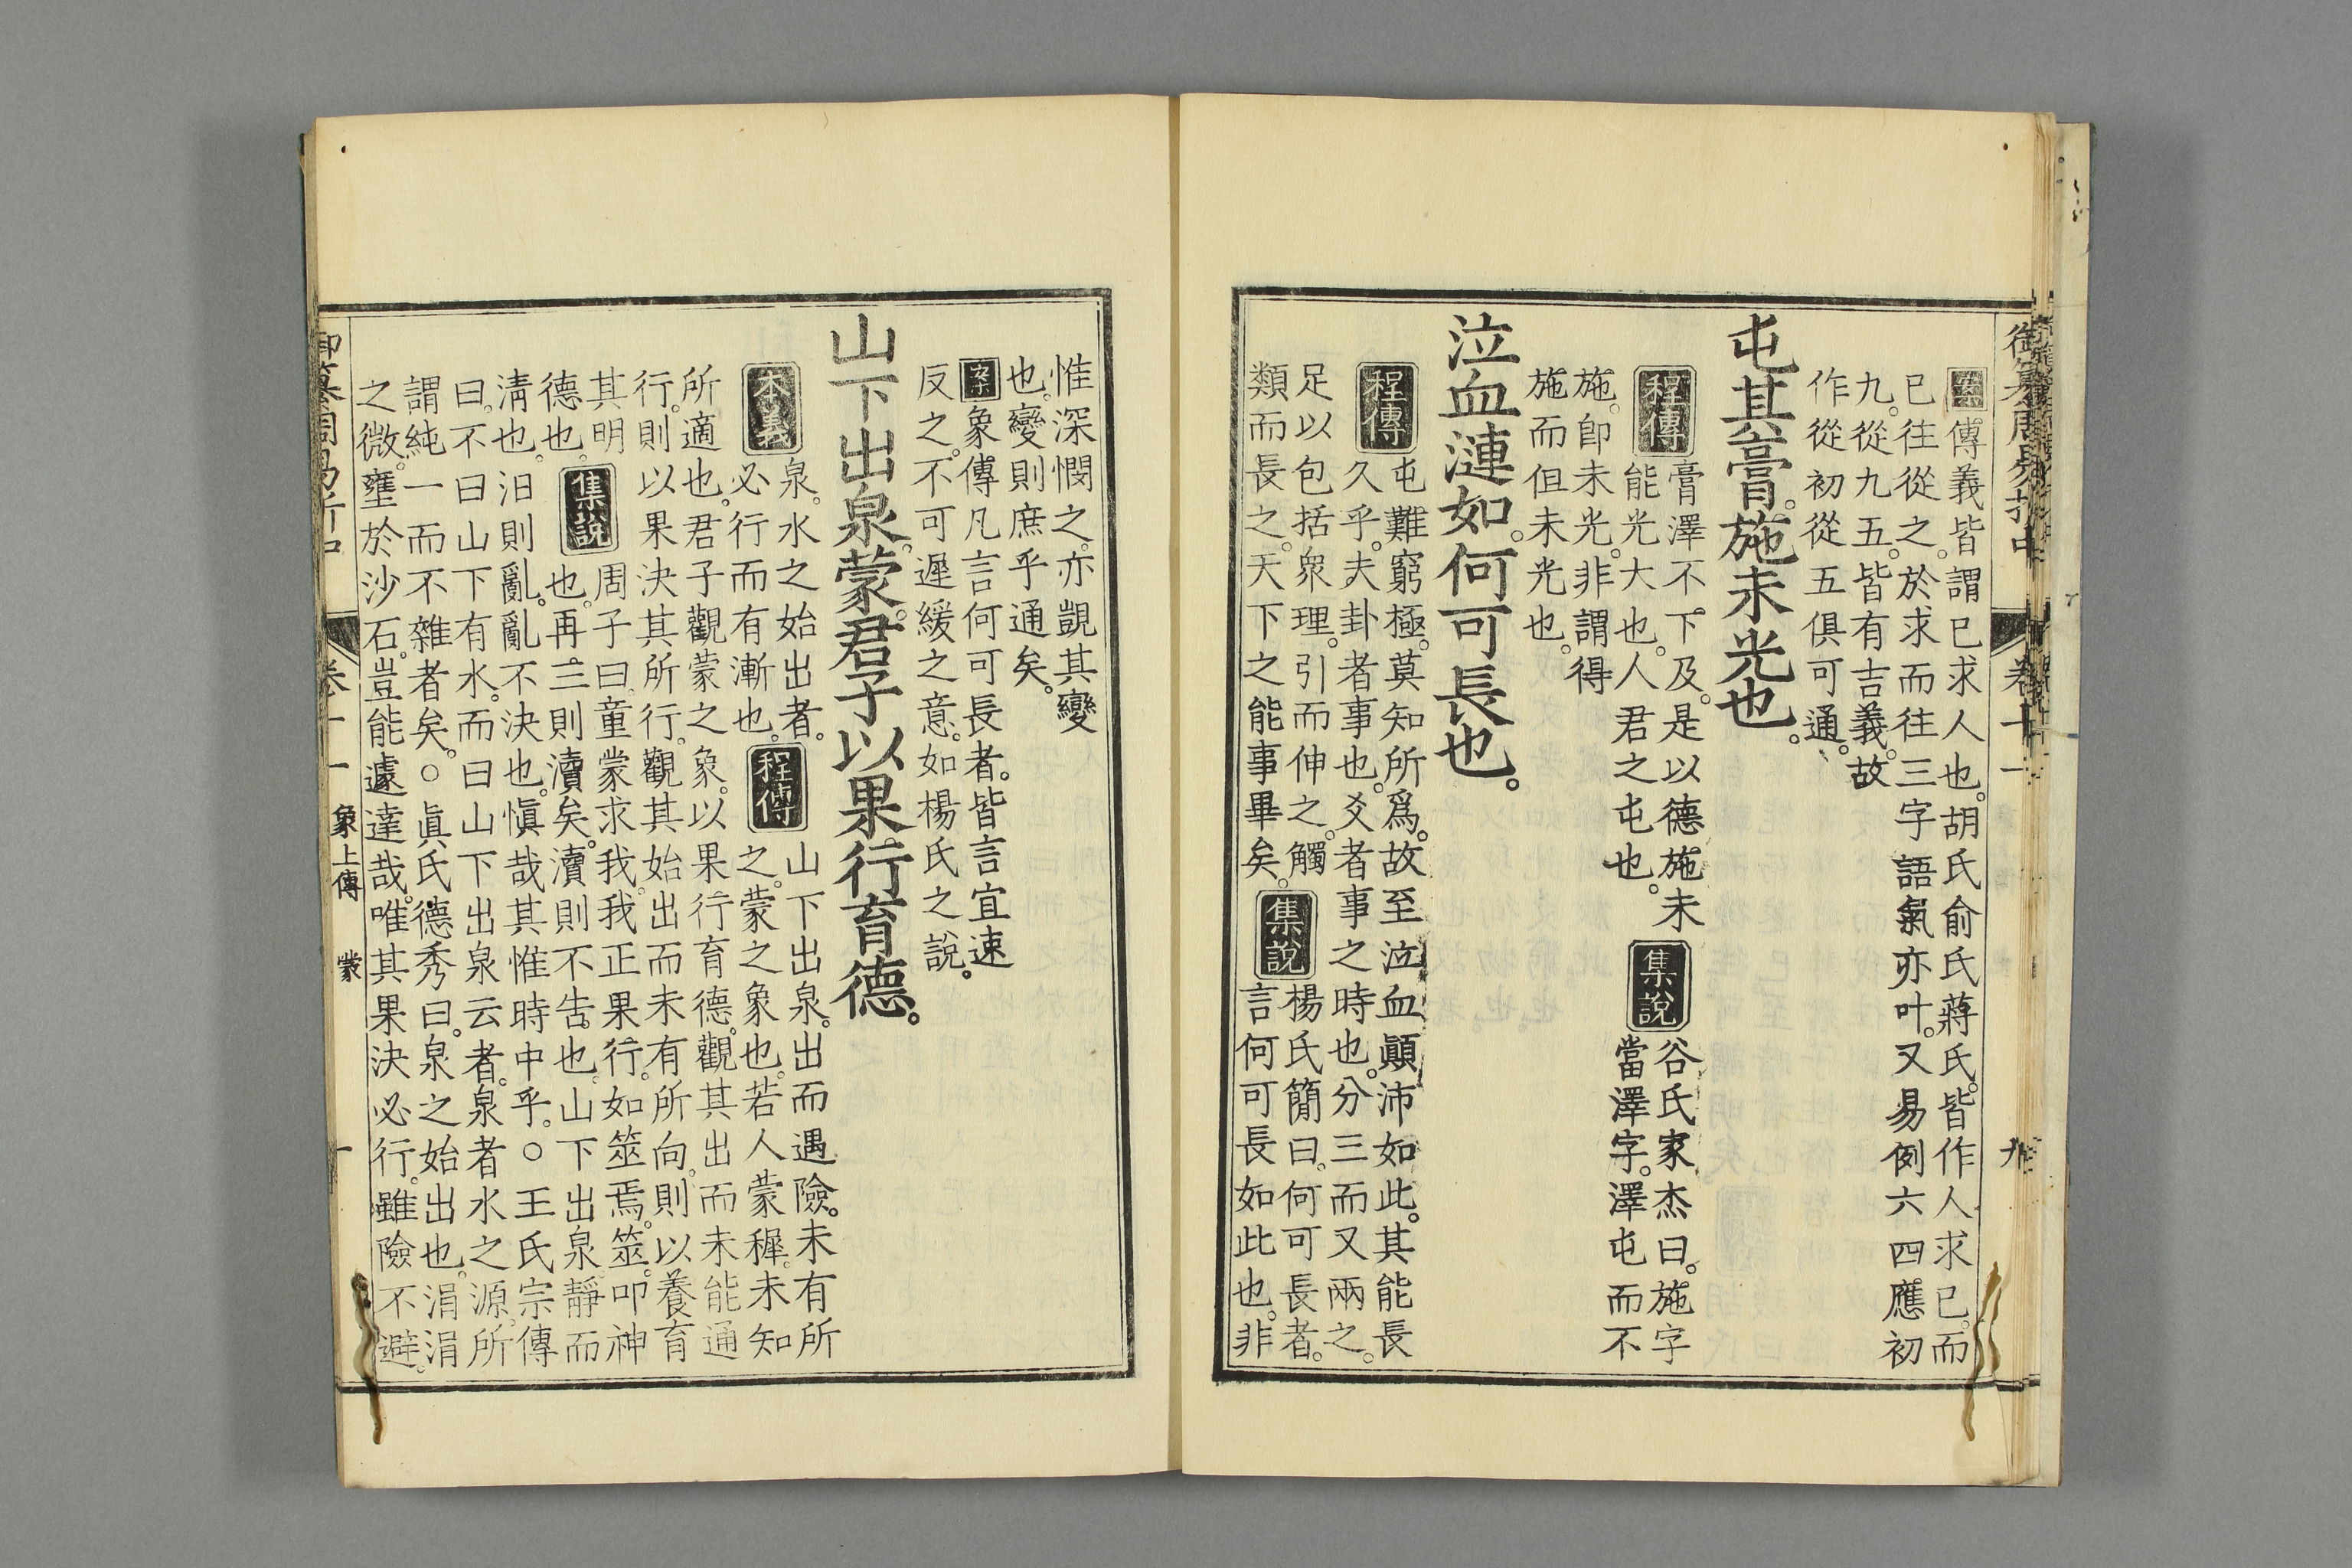 御纂周易折中 卷十一 九
案 傳義皆謂已求人也。胡氏俞氏蔣氏。皆作人求已。而
已往從之。於求而往三字語氣亦叶。又易例六四應初
九。從九五。皆有吉義。故
作從初從五俱可通。
屯其膏。施未光也。
程傳 膏澤不下及。是以德施未
能光大也。人君之屯也。
集說 谷氏家杰曰。施字
當澤字。澤屯而不
施。卽未光。非謂得
施而但未光也。
泣血漣如。何可長也。
程傳 屯難窮極。莫知所爲。故至泣血顚沛如此。其能長
久乎。夫卦者事也。爻者事之時也。分三而又兩之。
足以包括衆理。引而伸之。觸
類而長之。天下之能事畢矣。
集說 楊氏簡曰。何可長者。
言何可長如此也。非
惟深憫之。亦覬其變
也。變則庶乎通矣。
案 象傳凡言何可長者。皆言宜速
反之。不可遲緩之意。如楊氏之說。
山下出泉。蒙。君子以果行育德。
本義 泉。水之始出者。
必行而有漸也。
程傳 山下出泉。出而遇險。未有所
之。蒙之象也。若人蒙穉。未知
所適也。君子觀蒙之象。以果行育德。觀其出而未能通
行。則以果決其所行。觀其始出而未有所向。則以養育
其明
德也。
集說 周子曰。童蒙求我。我正果行。如筮焉。筮。叩神
也。再三則瀆矣。瀆則不告也。山下出泉。靜而
淸也。汩則亂。亂不決也。愼哉其惟時中乎。○王氏宗傳
曰。不曰山下有水。而曰山下出泉云者。泉者水之源。所
謂純一而不雜者矣。○眞氏德秀曰。泉之始出也。涓涓
之微。壅於沙石。豈能遽達哉。唯其果決必行。雖險不避。
御纂周易折中 卷十一 象上傳 蒙